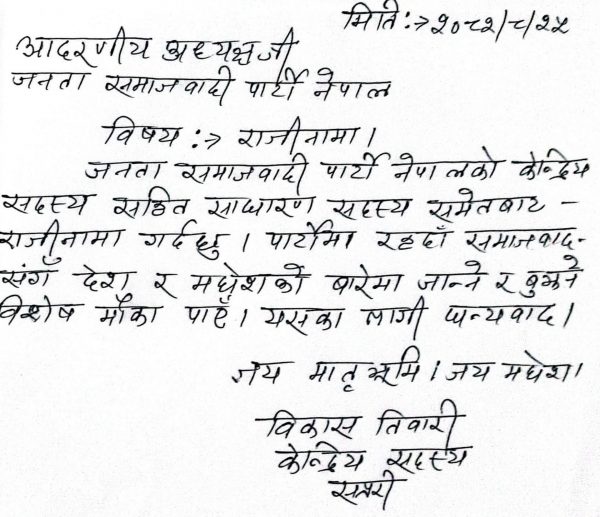 मिति :→ २०८२/८/२५
आदरणीय अध्यक्ष जी
जनता समाजवादी पार्टी नेपाल
विषय :→ राजीनामा।
जनता समाजवादी पार्टी नेपालको केन्द्रिय
सदस्य सहित साधारण सदस्य समेतबाट -
राजीनामा गर्दछु। पार्टीमा रहदाँ समाजवाद-
सँग देश र मधेशको बारेमा जान्ने र बुझ्ने
विशेष मौका पाएँ। यसका लागी धन्यवाद।
जय मातृभूमि। जय मधेश।
विकास तिवारी
केन्द्रिय सदस्य
सप्तरी